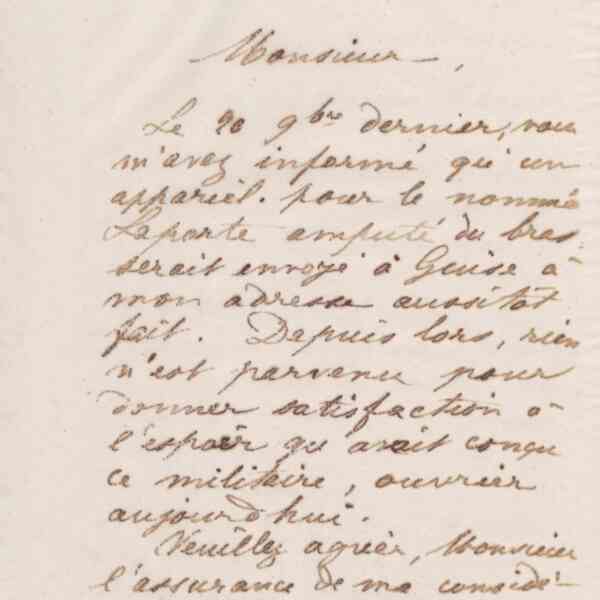 Monsieur,
Le 20 9bre dernier, vous
m'avez informé qu'un
appareil pour le nommé
Laporte amputé du bras
serait envoyé à Guise à
mon adresse aussitôt
fait. Depuis lors, rien
n'est parvenu pour
donner satisfaction à
l'espoir qu'avait conçu
ce militaire, ouvrier
aujourd'hui.
Veuillez agréer, Monsieur
l'assurance de ma considé-